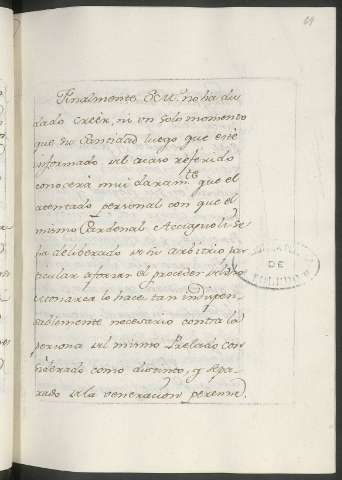 Finalmente S. M. no ha du
dado creer, ni un solo momento
que su Santidad luego que esté
informado del caso referido
conocerá mui claram.te que el
atentado personal con que el
mismo Cardenal Acciapoli se
ha deliberado de su arbitrio par
ticular el proceder
lo hace tan indispen
sablemente necesario contra la
persona del mismo Prelado con
siderado como distinto, y sepa
rado de la veneracion perenne
DE
TOLEDO